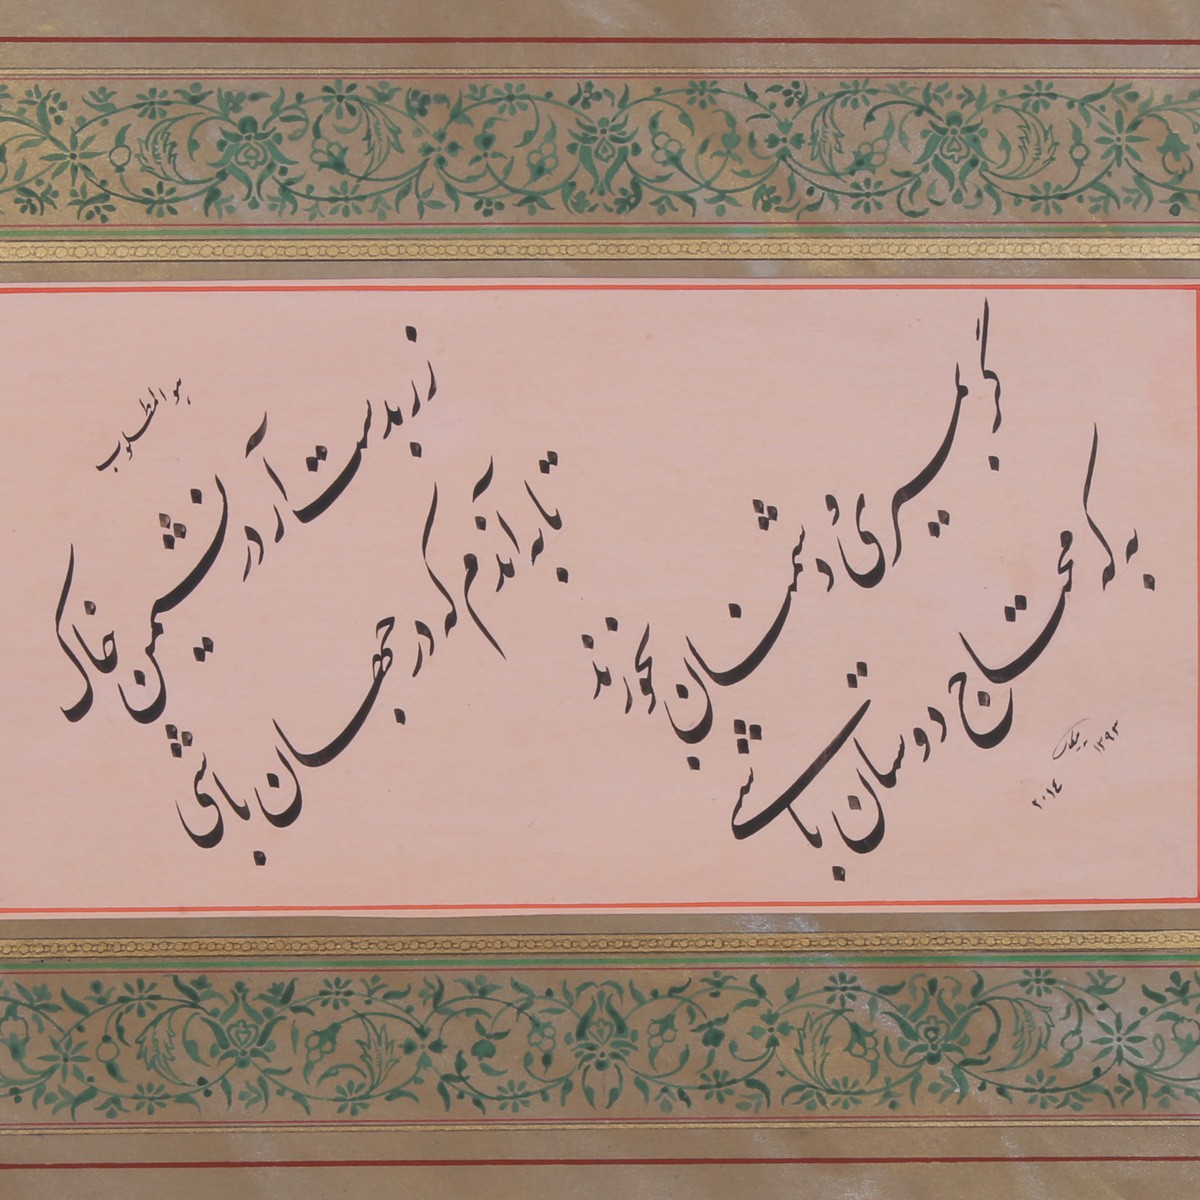 هو المطلوب
زر بدست آر در نشیمن خاک
تا به آندم که در جهان باشی
گر بمیری و دشمنان بخورند
به که محتاج دوستان باشی
۱۳۹۳
۲۰۱٤